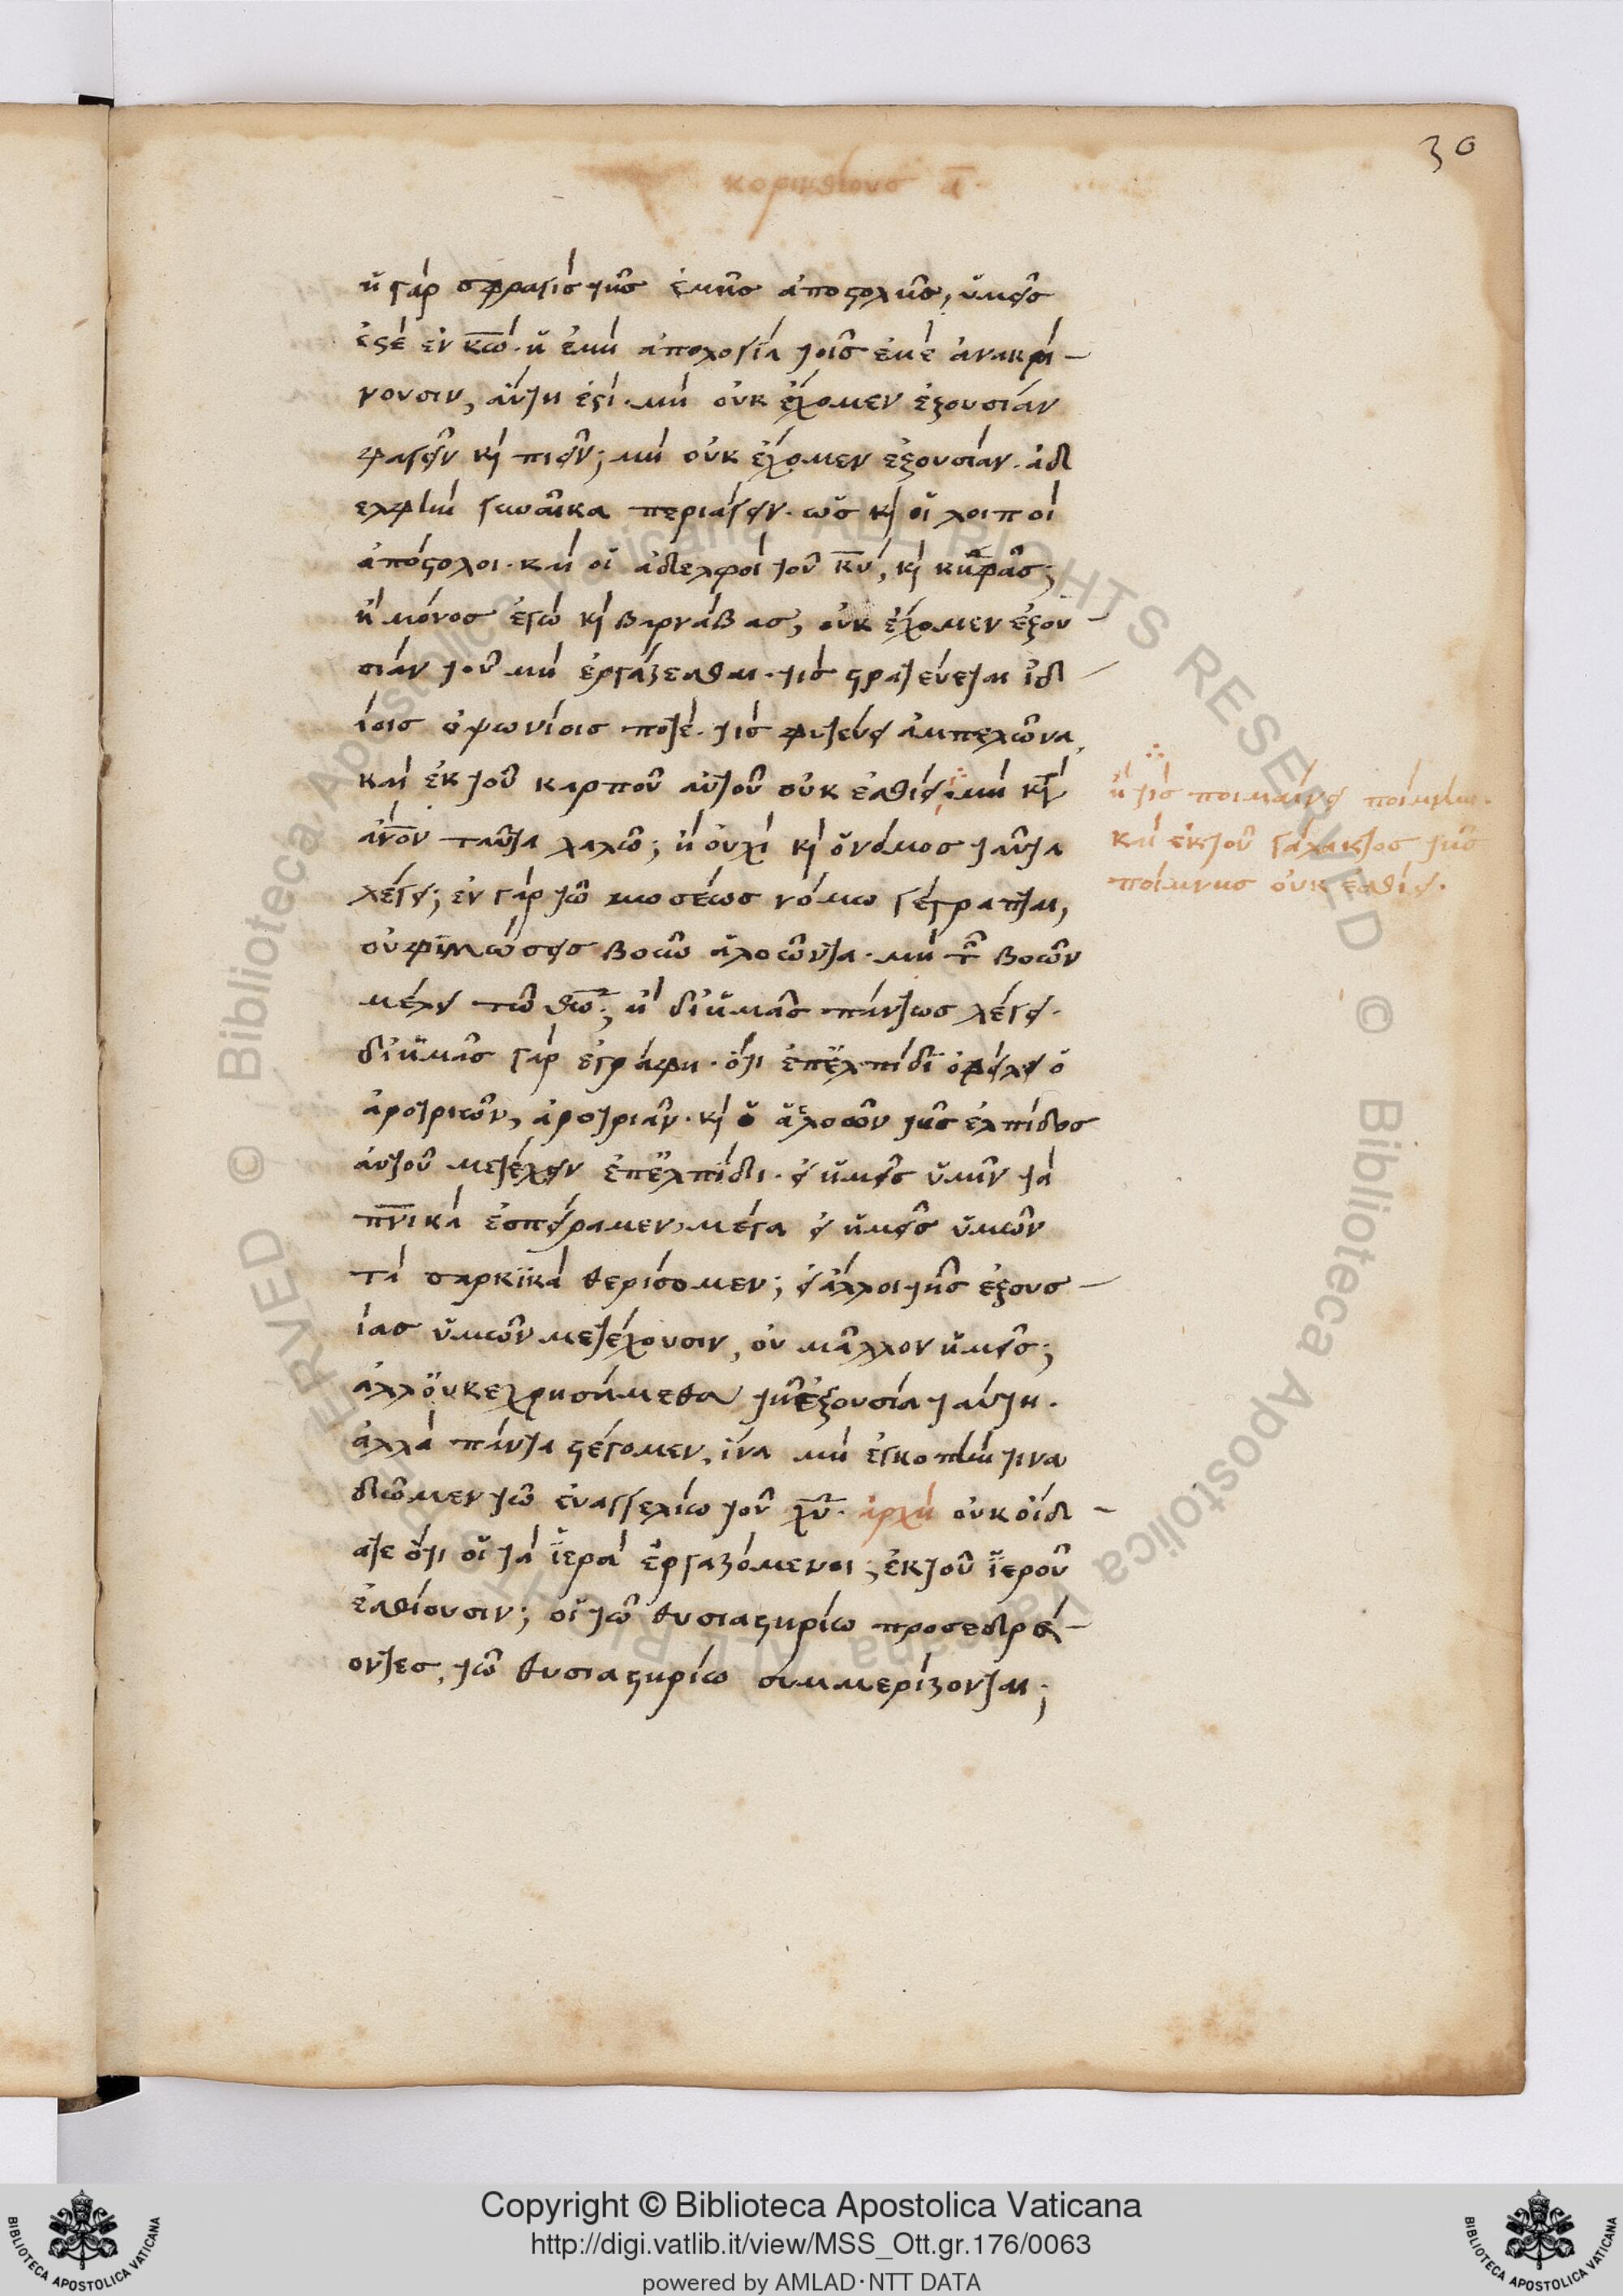 30
κορινθίους α̅
ἡ γὰρ σφραγὶς τῆς ἐμῆς ἀποστολῆς, ὑμεῖς
ἐστὲ ἐν κ̅ω̅. ἡ ἐμὴ ἀπολογία τοῖς ἐμὲ ἀνακρί-
νουσιν, αὕτη ἐστί. μὴ οὐκ ἔχομεν ἐξουσίαν
φαγεῖν κὶ πιεῖν; μὴ οὐκ ἔχομεν ἐξουσίαν. ἀδ
ελφὴν γυναῖκα περιάγειν. ὡς κὶ οἱ λοιποὶ
ἀπόστολοι. καὶ οἱ ἀδελφοὶ τοῦ κ̅υ̅, κὶ κηφᾶς;
ἢ μόνος ἐγὼ κὶ βαρνάβας, οὐκ ἔχομεν ἐξου-
σίαν τοῦ μὴ ἐργάζεσθαι. τίς στρατεύεται ἰδ-
ίοις ὀψωνίοις ποτέ. τίς φυτεύει ἀμπελῶνα,
καὶ ἐκ τοῦ καρποῦ αὐτοῦ οὐκ ἐσθίει ∴ μὴ κ̅τ̅
α̅ν̅ο̅ν̅ ταῦτα λαλῶ; ἢ οὐχὶ κὶ ὁ νόμος ταῦτα
λέγει; ἐν γὰρ τῷ μωσέως νόμω γέγραπται,
οὐ φιμώσεις βοῦν ἀλοῶντα. μὴ τ̅ βοῶν
μέλει τῶ θ̅ω̅; ἢ δι ἡμᾶς πάντως λέγει.
δι ἡμᾶς γὰρ ἐγράφη. ὅτι ἐπ ἐλπίδι ὀφείλει ὁ
ἀροτριῶν, ἀροτριᾶν. κὶ ὁ ἀλοῶν τῆς ἐλπίδος
αὐτοῦ μετέχειν ἐπ ἐλπίδι. εἰ ἡμεῖς ὑμῖν τὰ
π̅ν̅ικὰ ἐσπείραμεν, μέγα εἰ ἡμεῖς ὑμῶν
τὰ σαρκϊκὰ θερίσομεν; εἰ ἄλλοι τῆς ἐξουσ-
ίας ὑμῶν μετέχουσιν, οὐ μᾶλλον ἡμεῖς;
ἀλλ οὐκ ἐχρησάμεθα τῇ ἐξουσία ταύτη.
ἀλλὰ πάντα στέγομεν, ἵνα μὴ ἐγκοπὴν τινα
δῶμεν τῶ εὐαγγελίω τοῦ χ̅υ̅. ἀρχὴ οὐκ οἴδ-
ατε ὅτι οἱ τὰ ἱερὰ ἐργαζόμενοι; ἐκ τοῦ ἱεροῦ
ἐσθίουσιν; οἱ τῶ θυσιαστηρίω προσεδρεύ-
οντες, τῶ θυσιαστηρίω συμμερίζονται;
∴
ἢ τίς ποιμαίνει ποίμνην.
καὶ ἐκ τοῦ γάλακτος τῆς
ποίμνης οὐκ ἐσθίει.
Copyright © Biblioteca Apostolica Vaticana
http://digi.vatlib.it/view/MSS_Ott.gr.176/0063
powered by AMLAD·NTT DATA
BIBLIOTECA APOSTOLICA VATICANA
BIBLIOTECA APOSTOLICA VATICANA
© Biblioteca Apostolica Vaticana ALL RIGHTS RESERVED
© Biblioteca Apostolica Vaticana ALL RIGHTS RESERVED